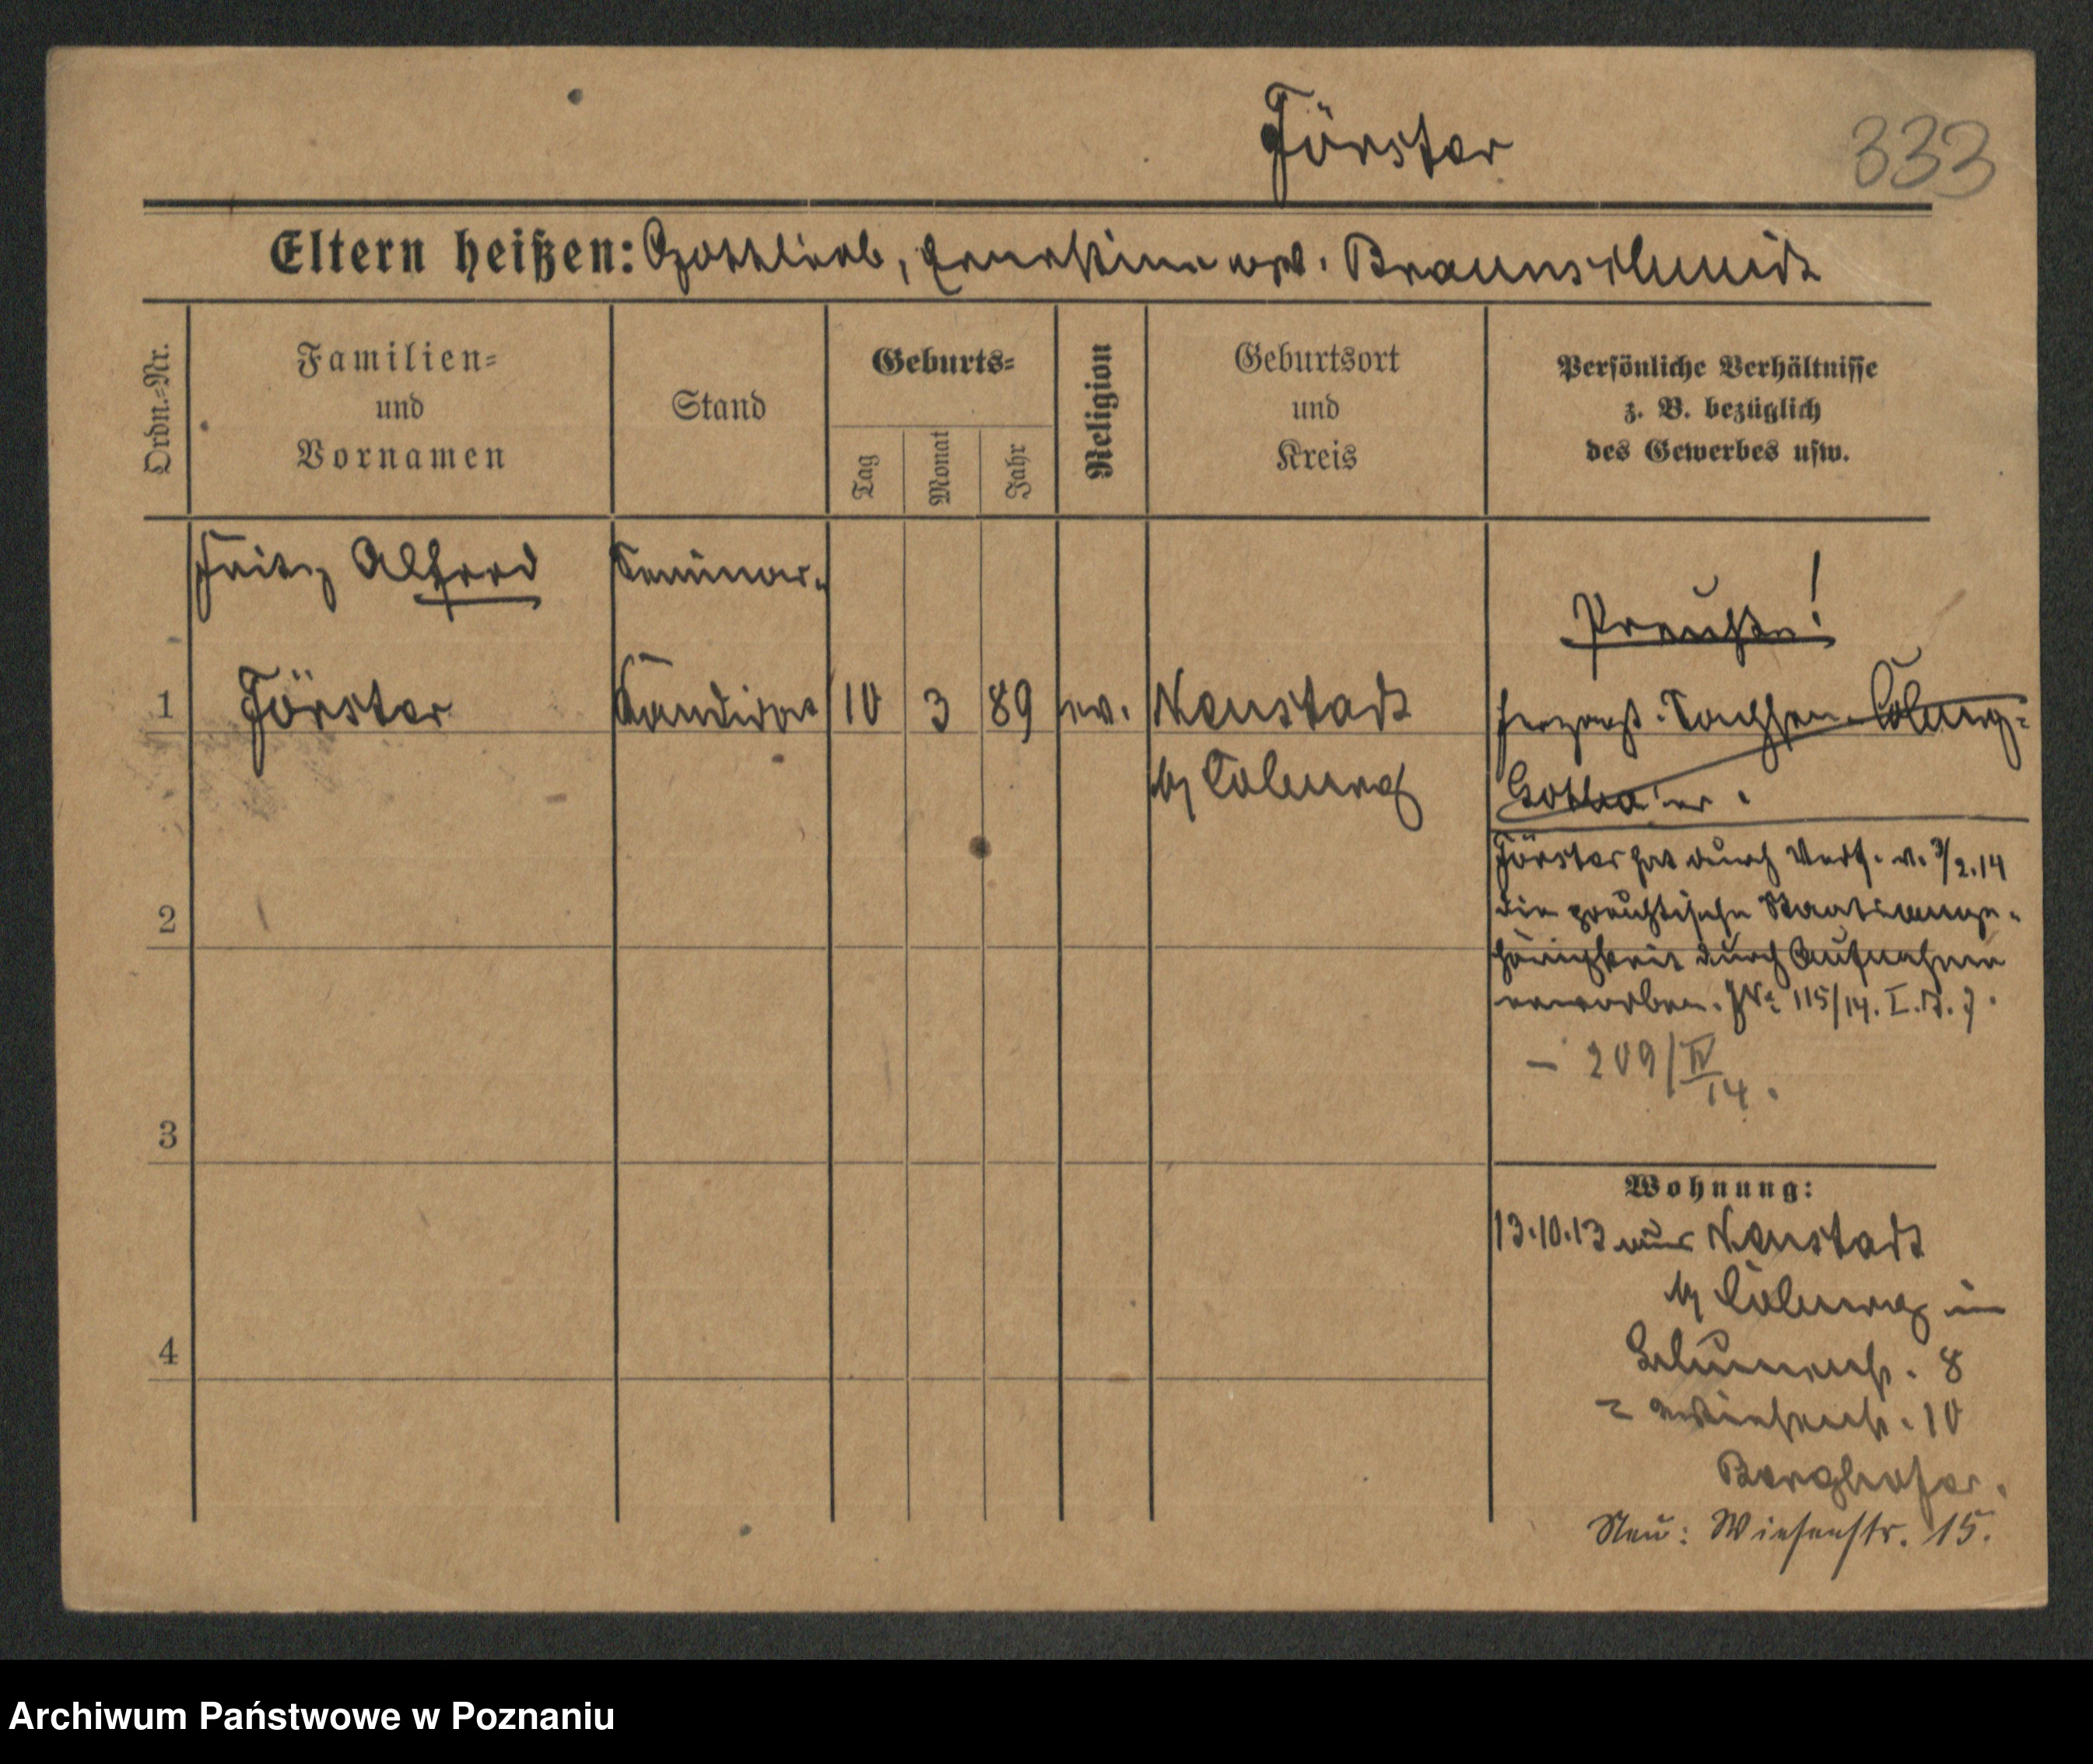 Förster
333
Eltern heißen: Gottlieb, Ernestine geb. Braunschmidt
Ordn.-Nr.
Familien-
und
Vornamen
Stand
Geburts-
Tag
Monat
Jahr
Religion
Geburtsort
und
Kreis
Persönliche Verhältnisse
z. B. bezüglich
des Gewerbes usw.
Fritz Alfred
Seminar-
Preuße!
1
Förster
Kandidat
10
3
89
ev.
Neustadt
b/ Coburg
Herzogl. Sachsen-Coburg-
Gotha'er.
Förster hat durch Verf. v. 3/2.14
die preußische Staatsange-
hörigkeit durch Aufnahme
erworben. JNr 115/14. I.
– 209/IV
14.
2
3
4
Wohnung:
13.10.13 aus Neustadt
b/ Coburg in
Blumenstr. 8
Wiesenstr. 10
Neu: Wiesenstr. 15.
Archiwum Państwowe w Poznaniu